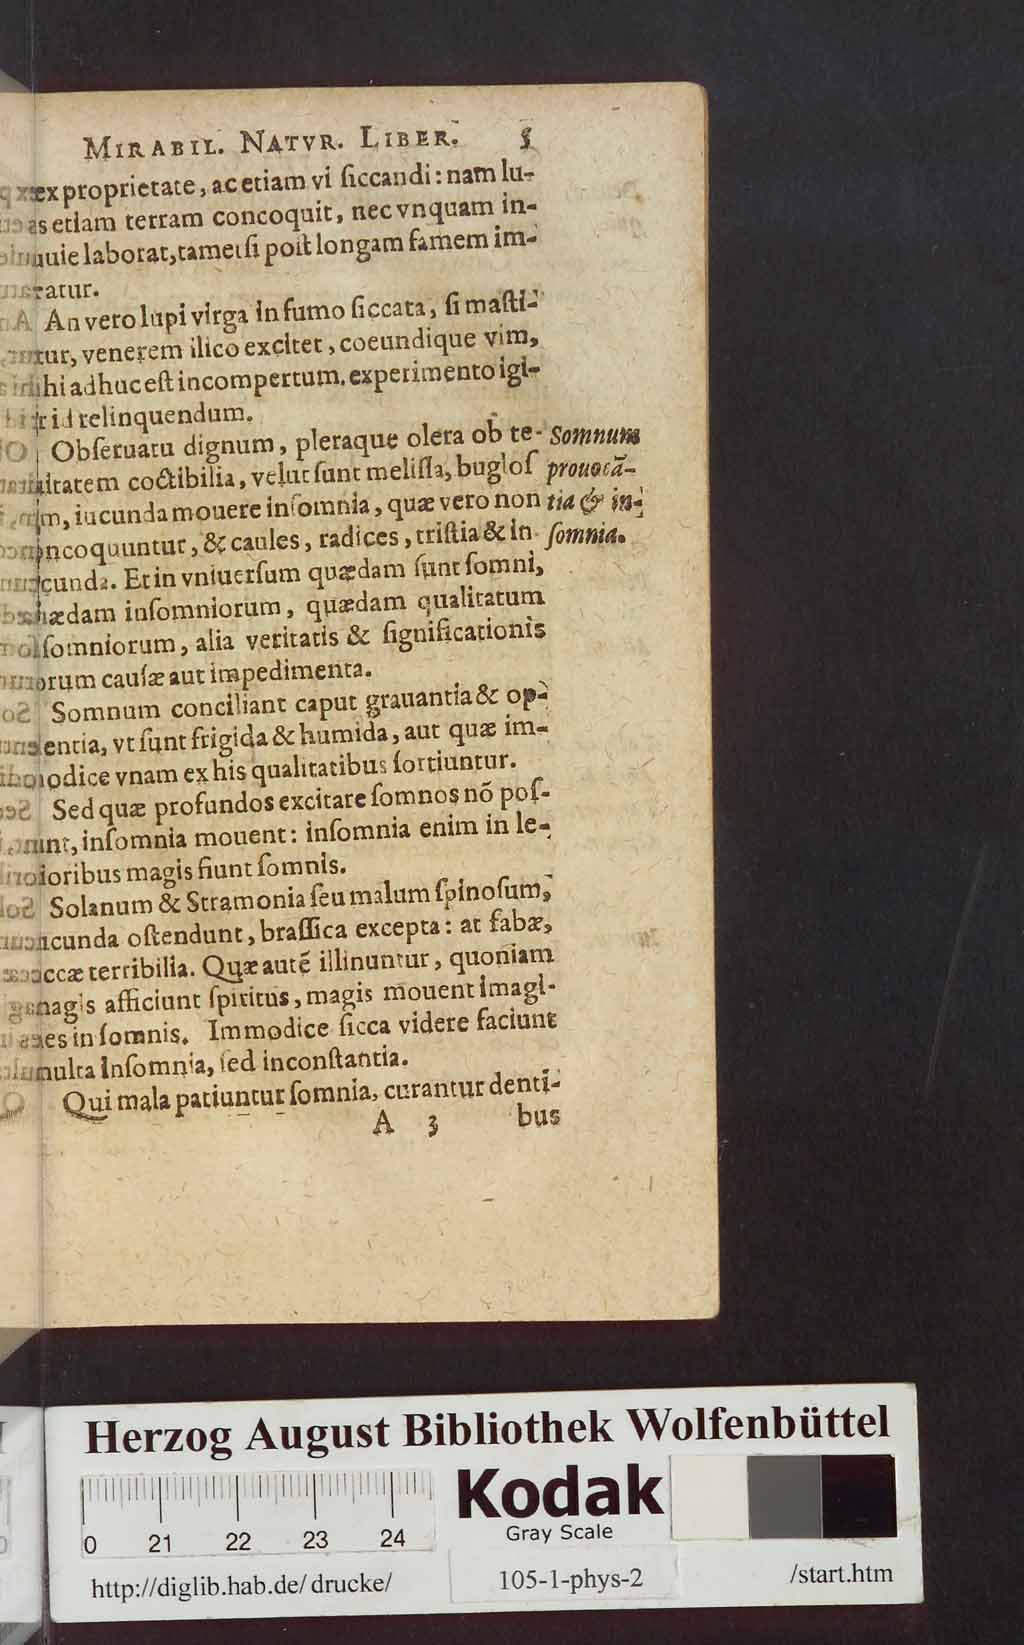 MIRABIL. NATVR. LIBER. 5
ex proprietate, ac etiam vi ſiccandi: nam lu-
as etiam terram concoquit, nec vnquam in-
uuie laborat, tametſi poſt longam famem im-
ratur.
An vero lupi virga in fumo ſiccata, ſi maſti-
tur, venerem ilico excitet, coeundique vim,
hi adhuc eſt incompertum. experimento igi-
r id relinquendum.
Obſeruatu dignum, pleraque olera ob te-
itatem coctibilia, velut ſunt meliſſa, bugloſ
m, iucunda mouere inſomnia, quæ vero non
ncoquuntur, & caules, radices, triſtia & in
cunda. Et in vniuerſum quædam ſunt ſomni,
ædam inſomniorum, quædam qualitatum
ſomniorum, alia veritatis & ſignificationis
orum cauſæ aut impedimenta.
Somnum conciliant caput grauantia & op-
entia, vt ſunt frigida & humida, aut quæ im-
odice vnam ex his qualitatibus ſortiuntur.
Sed quæ profundos excitare ſomnos nõ poſ-
unt, inſomnia mouent: inſomnia enim in le-
ioribus magis fiunt ſomnis.
Solanum & Stramonia ſeu malum ſpinoſum,
cunda oſtendunt, braſſica excepta: at fabæ,
ccæ terribilia. Quæ autẽ illinuntur, quoniam
nagis afficiunt ſpiritus, magis mouent imagi-
es in ſomnis. Immodice ſicca videre faciunt
multa inſomnia, ſed inconſtantia.
Qui mala patiuntur ſomnia, curantur denti-
A 3 bus
Somnum
prouocã-
tia & in-
ſomnia.
Herzog August Bibliothek Wolfenbüttel
0 21 22 23 24
Kodak
Gray Scale
http://diglib.hab.de/drucke/ 105-1-phys-2 /start.htm